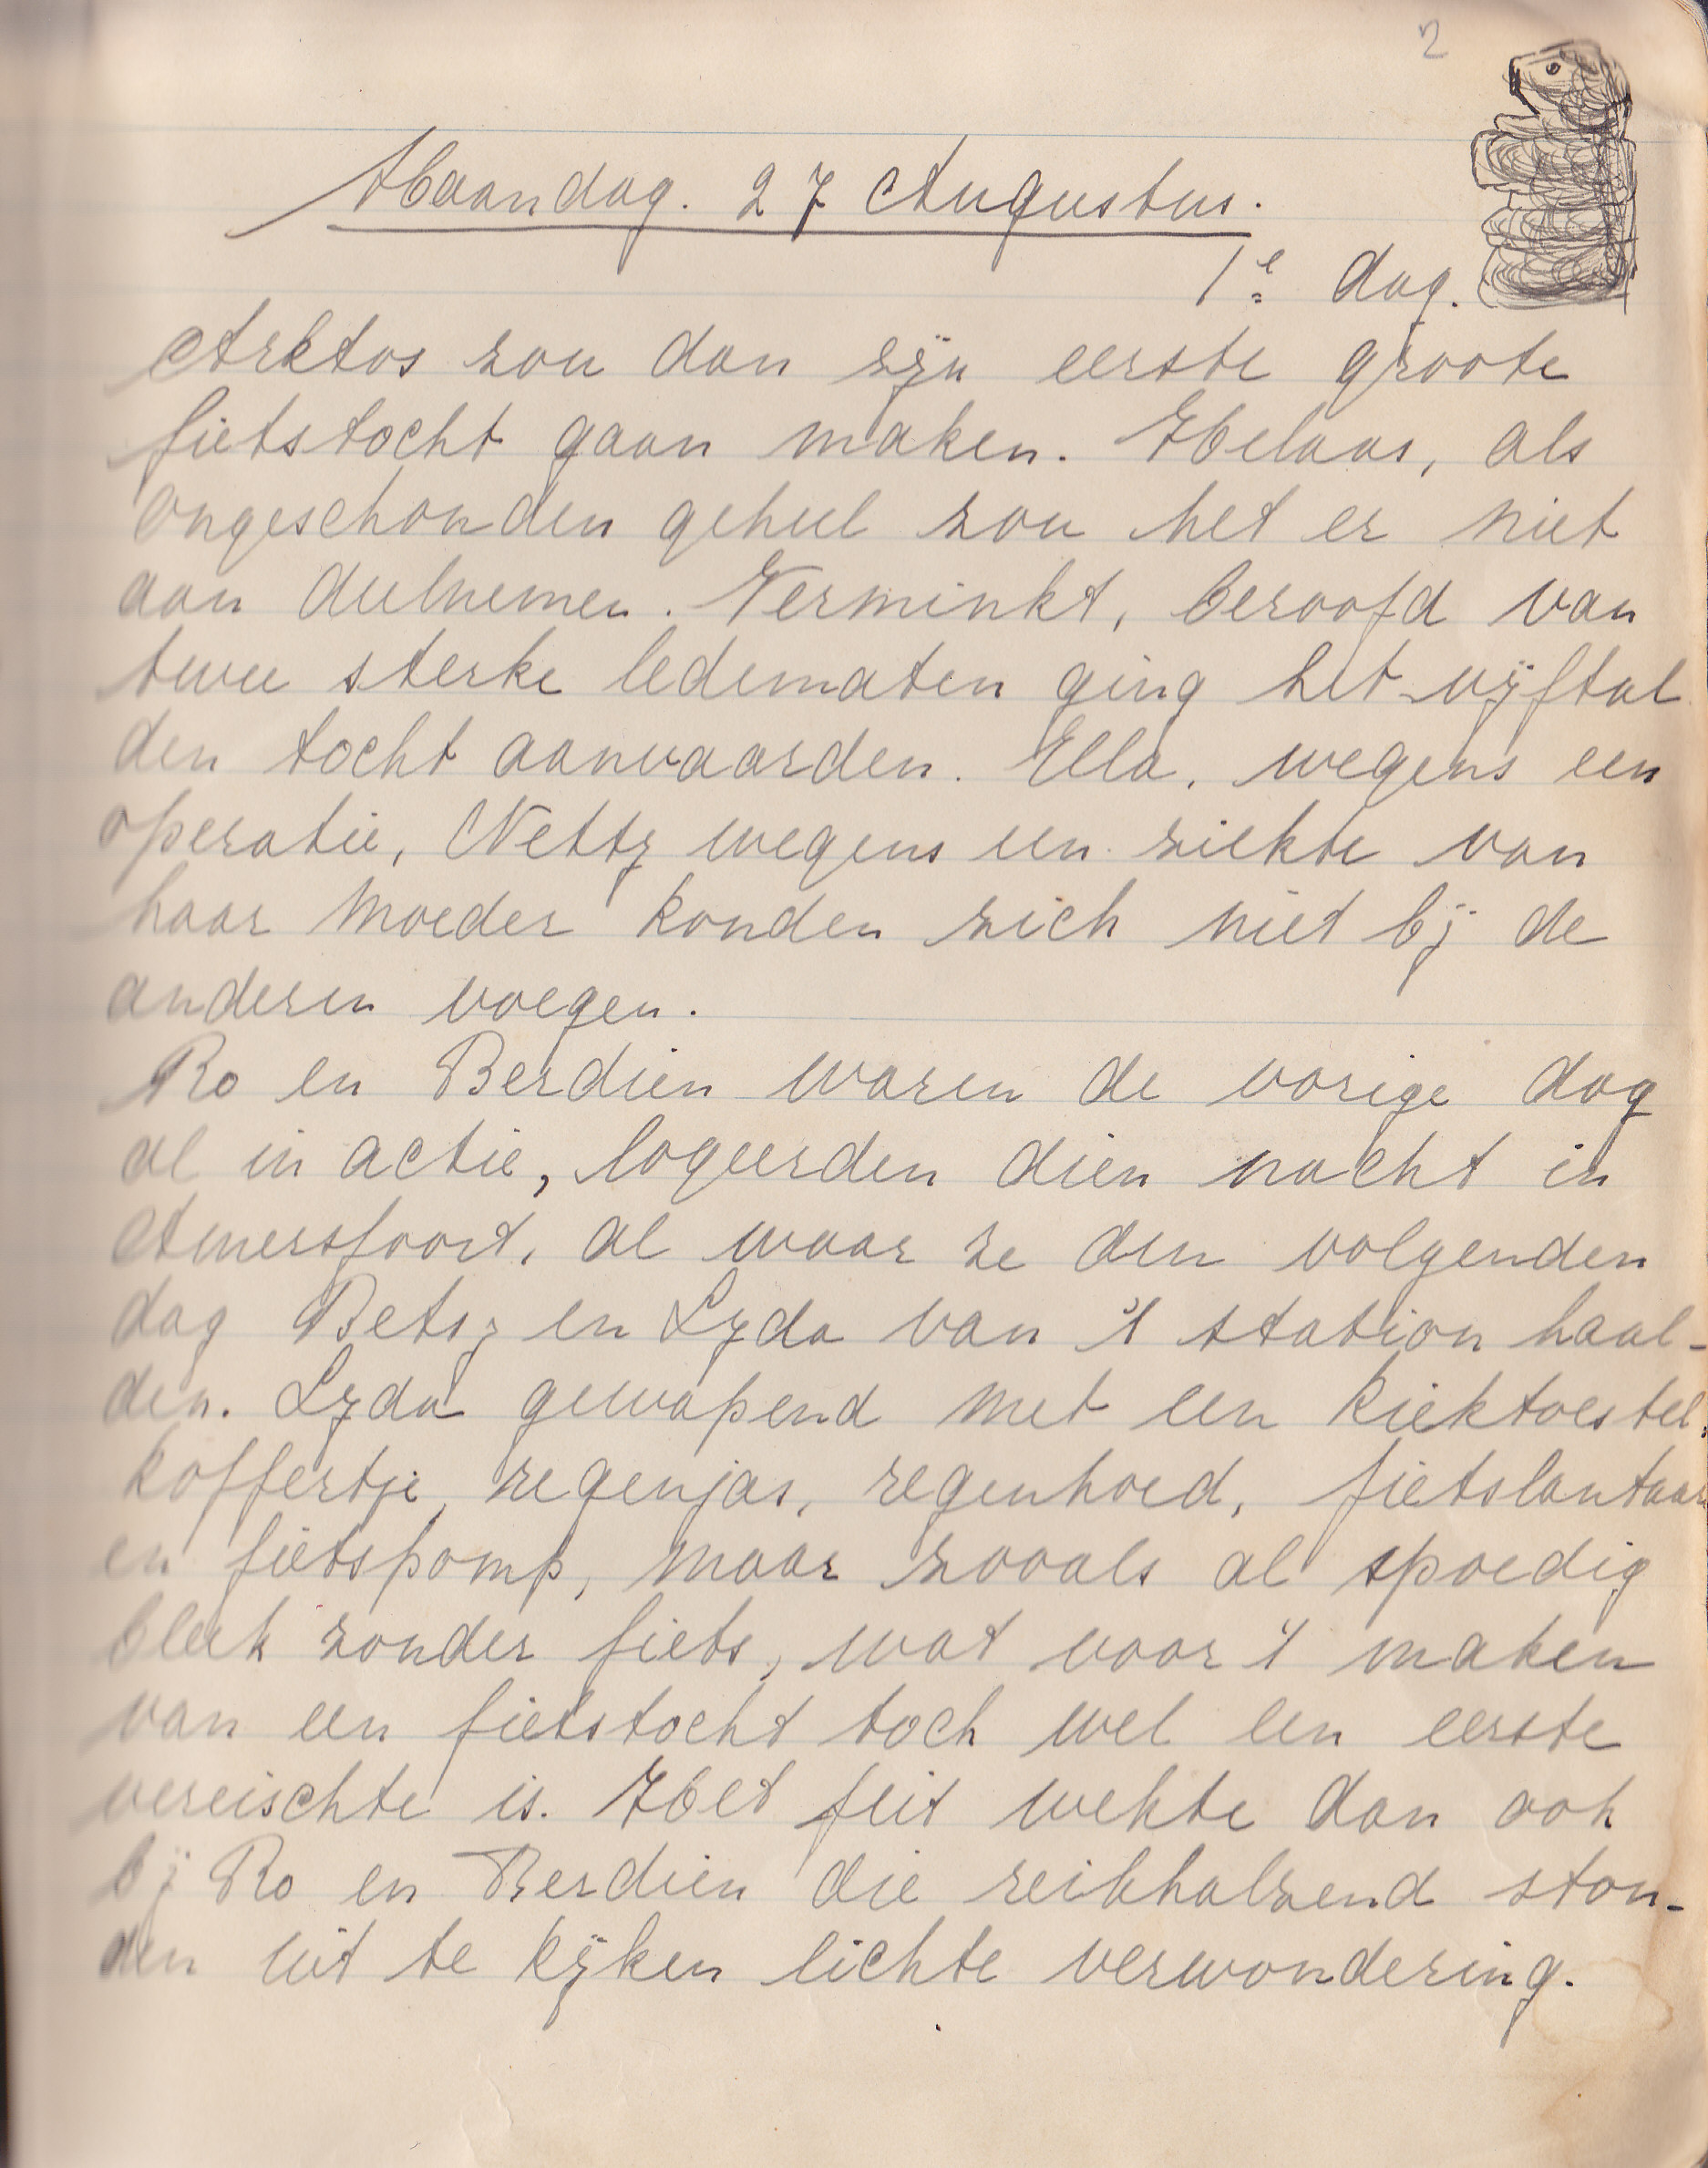 2
Maandag. 27 Augustus.
1e dag.
Arktos zou dan zijn eerste groote
fietstocht gaan maken. Helaas, als
ongeschonden geheel zou het er niet
aan deelnemen. Verminkt, beroofd van
twee sterke ledematen ging het vijftal
den tocht aanvaarden. Ella, wegens een
operatie, Netty wegens een ziekte van
haar moeder konden zich niet bij de
anderen voegen.
Ro en Berdien waren de vorige dag
al in actie, logeerden dien nacht in
Amersfoort, al waar ze den volgenden
dag Betsy en Lyda van 't station haal-
den. Lyda gewapend met een kiektoestel,
koffertje, regenjas, regenhoed, fietslantaarn
en fietspomp, maar zooals al spoedig
bleek zonder fiets, wat voor 't maken
van een fietstocht toch wel een eerste
vereischte is. Het feit wekte dan ook
bij Ro en Berdien die reikhalzend ston-
den uit te kijken lichte verwondering.